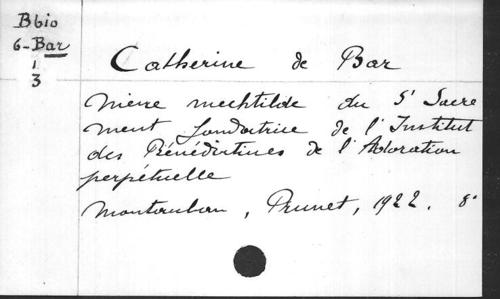 Bbio
6-Bar
1
3
Catherine de Bar
Mère mechtilde du St Sacre
ment fondatrice de l'Institut
des Bénédictines de l'Adoration
perpétuelle
Montauban, Prunet, 1922. 8°